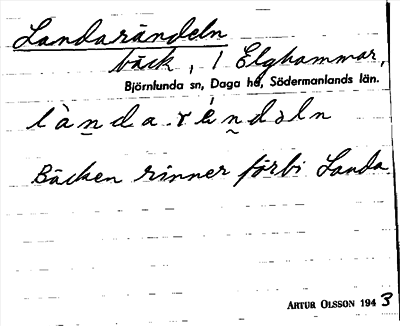 Landarändeln
bäck, / Elghammar,
Björnlunda sn, Daga hd, Södermanlands län.
làndaréndəln
Bäcken rinner förbi Landa
ARTUR OLSSON 1943